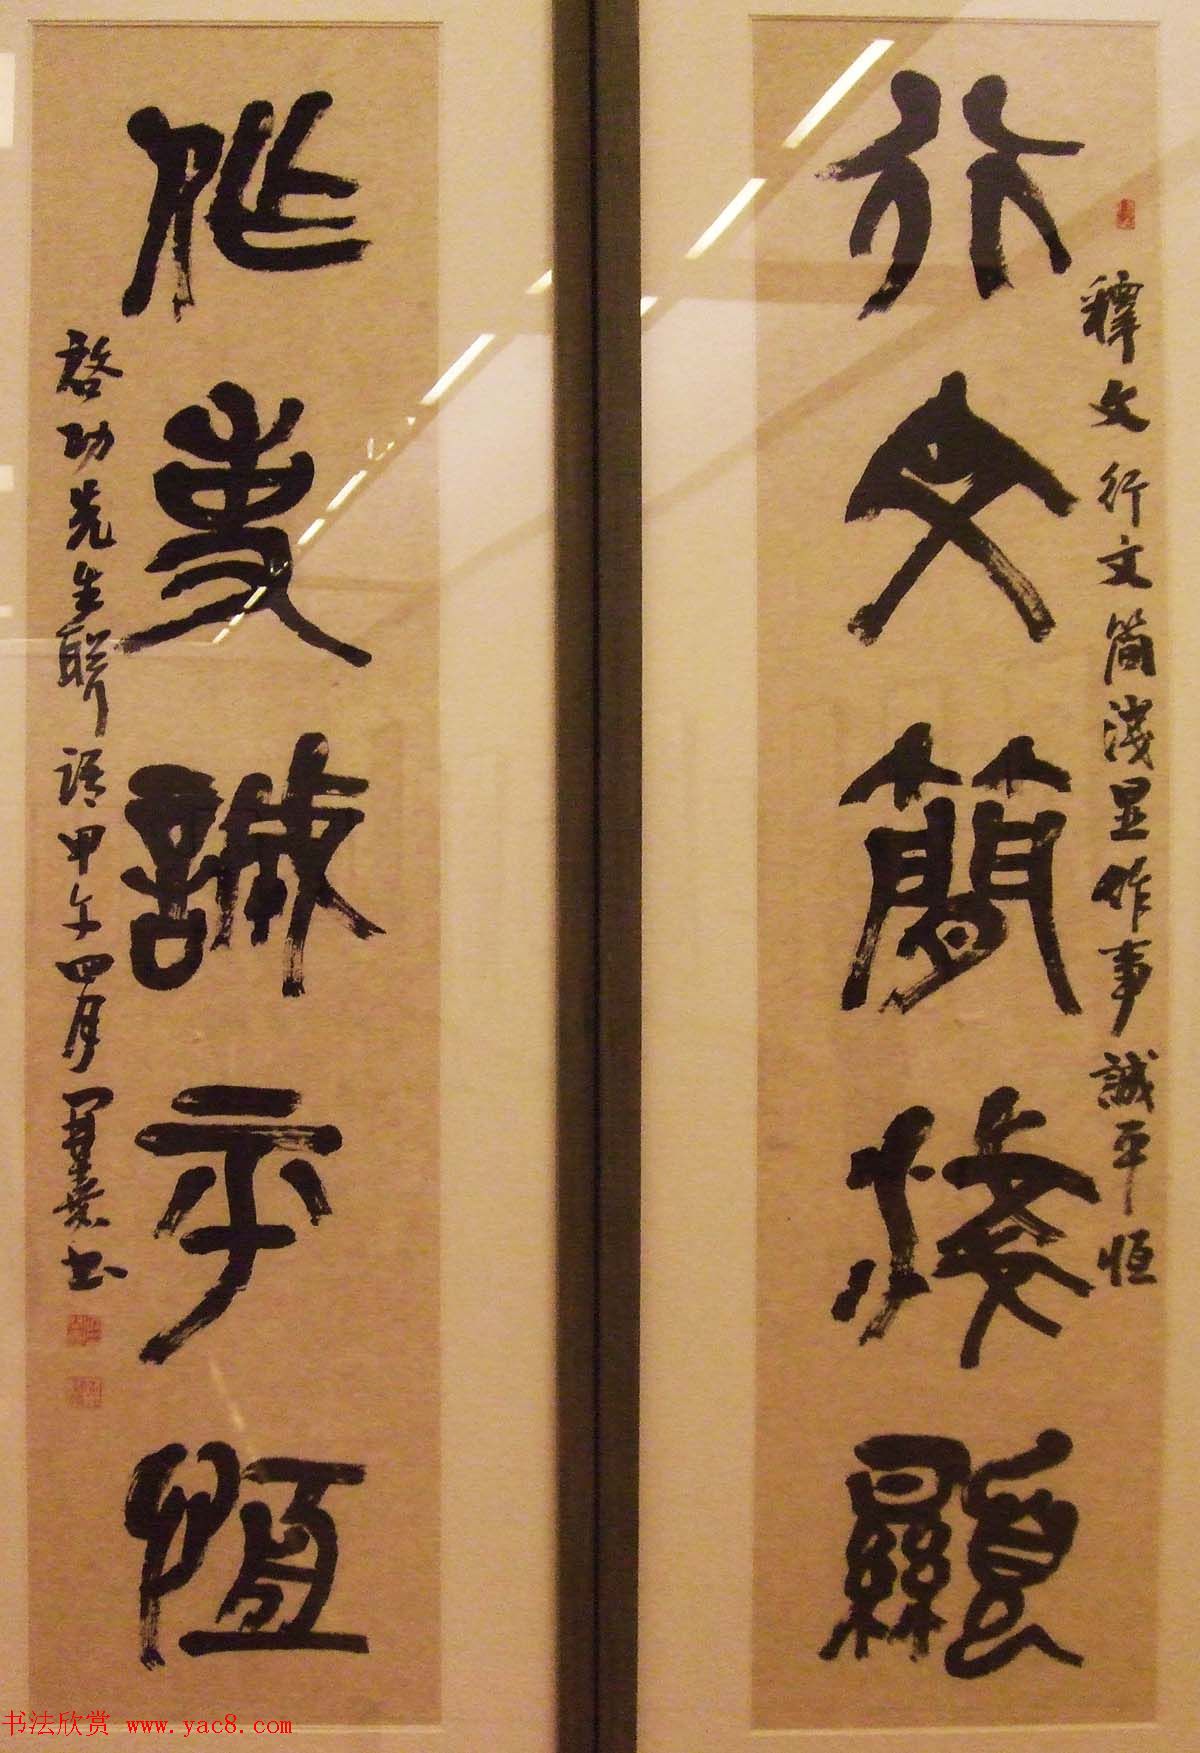 行文簡淺顯
釋文 行文简淺显作事誠平恒
作事誠平恒
啓功先生联语甲午四月
书法欣赏 www.yac8.com